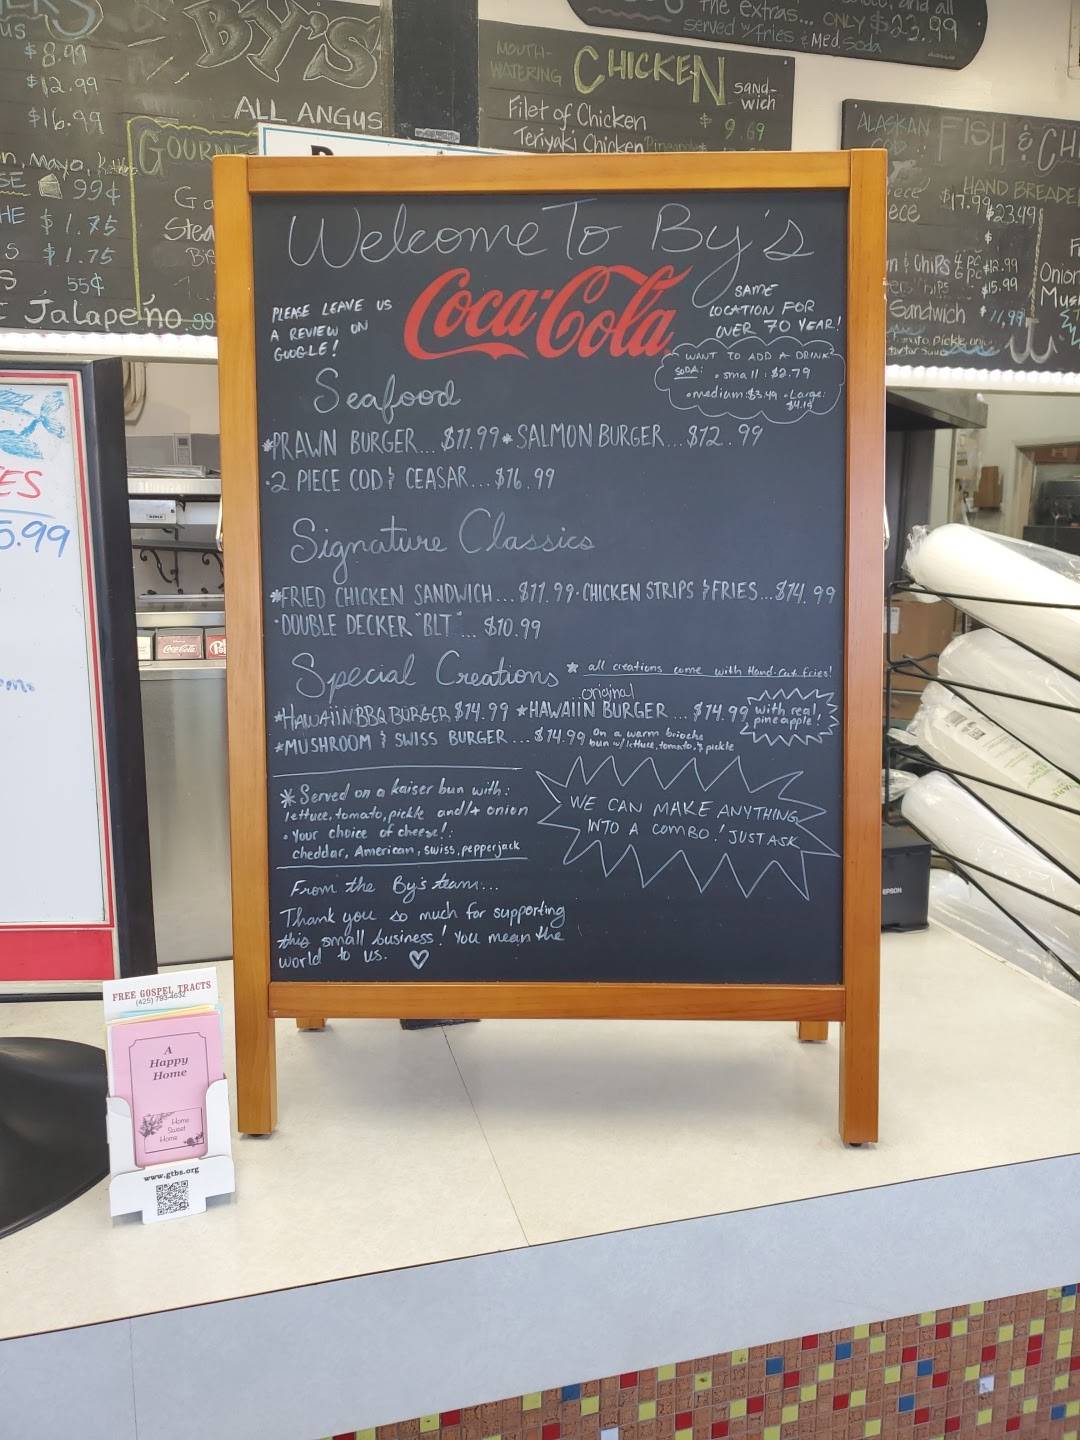 the extras... ONLY $23.99
served w/fries & Med. Soda
$8.99
$12.99
$16.99
BY'S
ALL ANGUS
GOURME
MOUTH-WATERING CHICKEN sandwich
Filet of Chicken $9.69
Teriyaki Chicken Pineapple
ALASKAN COD FISH & CH
HAND BREADE
$17.99 $23.49
n & Chips 4 pc $12.99
$15.99
Sandwich $11.99
Onion
99¢
$1.75
$1.75
55¢
Jalapeño .99
ES
5.99
Welcome To By's
PLEASE LEAVE US
A REVIEW ON
GOOGLE!
Coca-Cola
SAME
LOCATION FOR
OVER 70 YEAR!
WANT TO ADD A DRINK?
SODA: • small: $2.79
• medium: $3.49 • Large:
$4.19
Seafood
*PRAWN BURGER... $11.99 * SALMON BURGER... $12.99
• 2 PIECE COD & CEASAR... $16.99
Signature Classics
*FRIED CHICKEN SANDWICH... $11.99 • CHICKEN STRIPS & FRIES... $14.99
• DOUBLE DECKER "BLT"... $10.99
Special Creations * all creations come with Hand-Cut fries!
*HAWAIIN BBQ BURGER $14.99 *HAWAIIN original BURGER ... $14.99 with real pineapple!
*MUSHROOM & SWISS BURGER ... $14.99 on a warm brioche
bun w/lettuce, tomato, & pickle
* Served on a kaiser bun with:
lettuce, tomato, pickle and/or onion
• Your choice of cheese!:
cheddar, American, swiss, pepperjack
WE CAN MAKE ANYTHING
INTO A COMBO! JUST ASK
From the By's team...
Thank you so much for supporting
this small business! You mean the
world to us. ♡
Coca-Cola
EPSON
FREE GOSPEL TRACTS
(425) 793-4632
A
Happy
Home
Home
Sweet
Home
www.gtbs.org